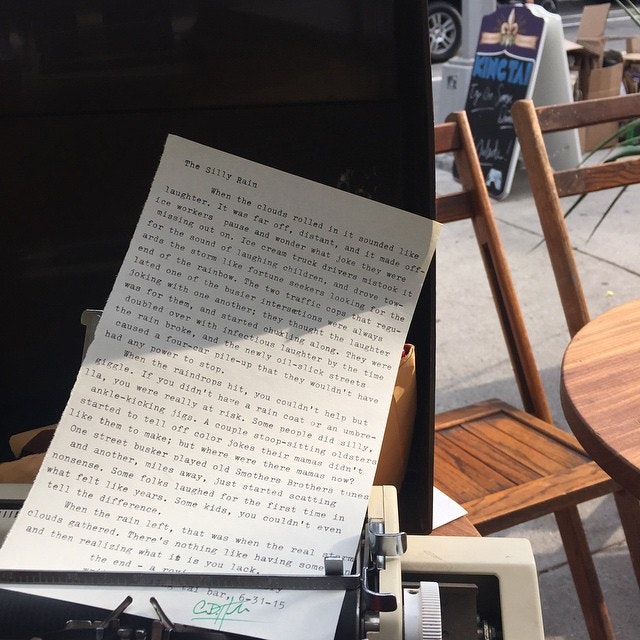 The Silly Rain
When the clouds rolled in it sounded like
laughter. It was far off, distant, and it made off-
ice workers pause and wonder what joke they were
missing out on. Ice cream truck drivers mistook it
for the sound of laughing children, and drove tow-
ards the storm like fortune seekers looking for the
end of the rainbow. The two traffic cops that regu-
lated one of the busier intersections were always
joking with one another; they thought the laughter
was for them, and started chuckling along. They were
doubled over with infectious laughter by the time
the rain broke, and the newly oil-slick streets
caused a four-car pile-up that they wouldn't have
had any power to stop.
When the raindrops hit, you couldn't help but
giggle. If you didn't have a rain coat or an umbre-
lla, you were really at risk. Some people did silly,
ankle-kicking jigs. A couple stoop-sitting oldsters
started to tell off color jokes their mamas didn't
like them to make; but where were there mamas now?
One street busker played old Smothers Brothers tunes
and another, miles away, just started scatting
nonsense. Some folks laughed for the first time in
what felt like years. Some kids, you couldn't even
tell the difference.
When the rain left, that was when the real storm
clouds gathered. There's nothing like having some
and then realizing what it is you lack.
the end - a
bar, 6-31-15
KING TAI